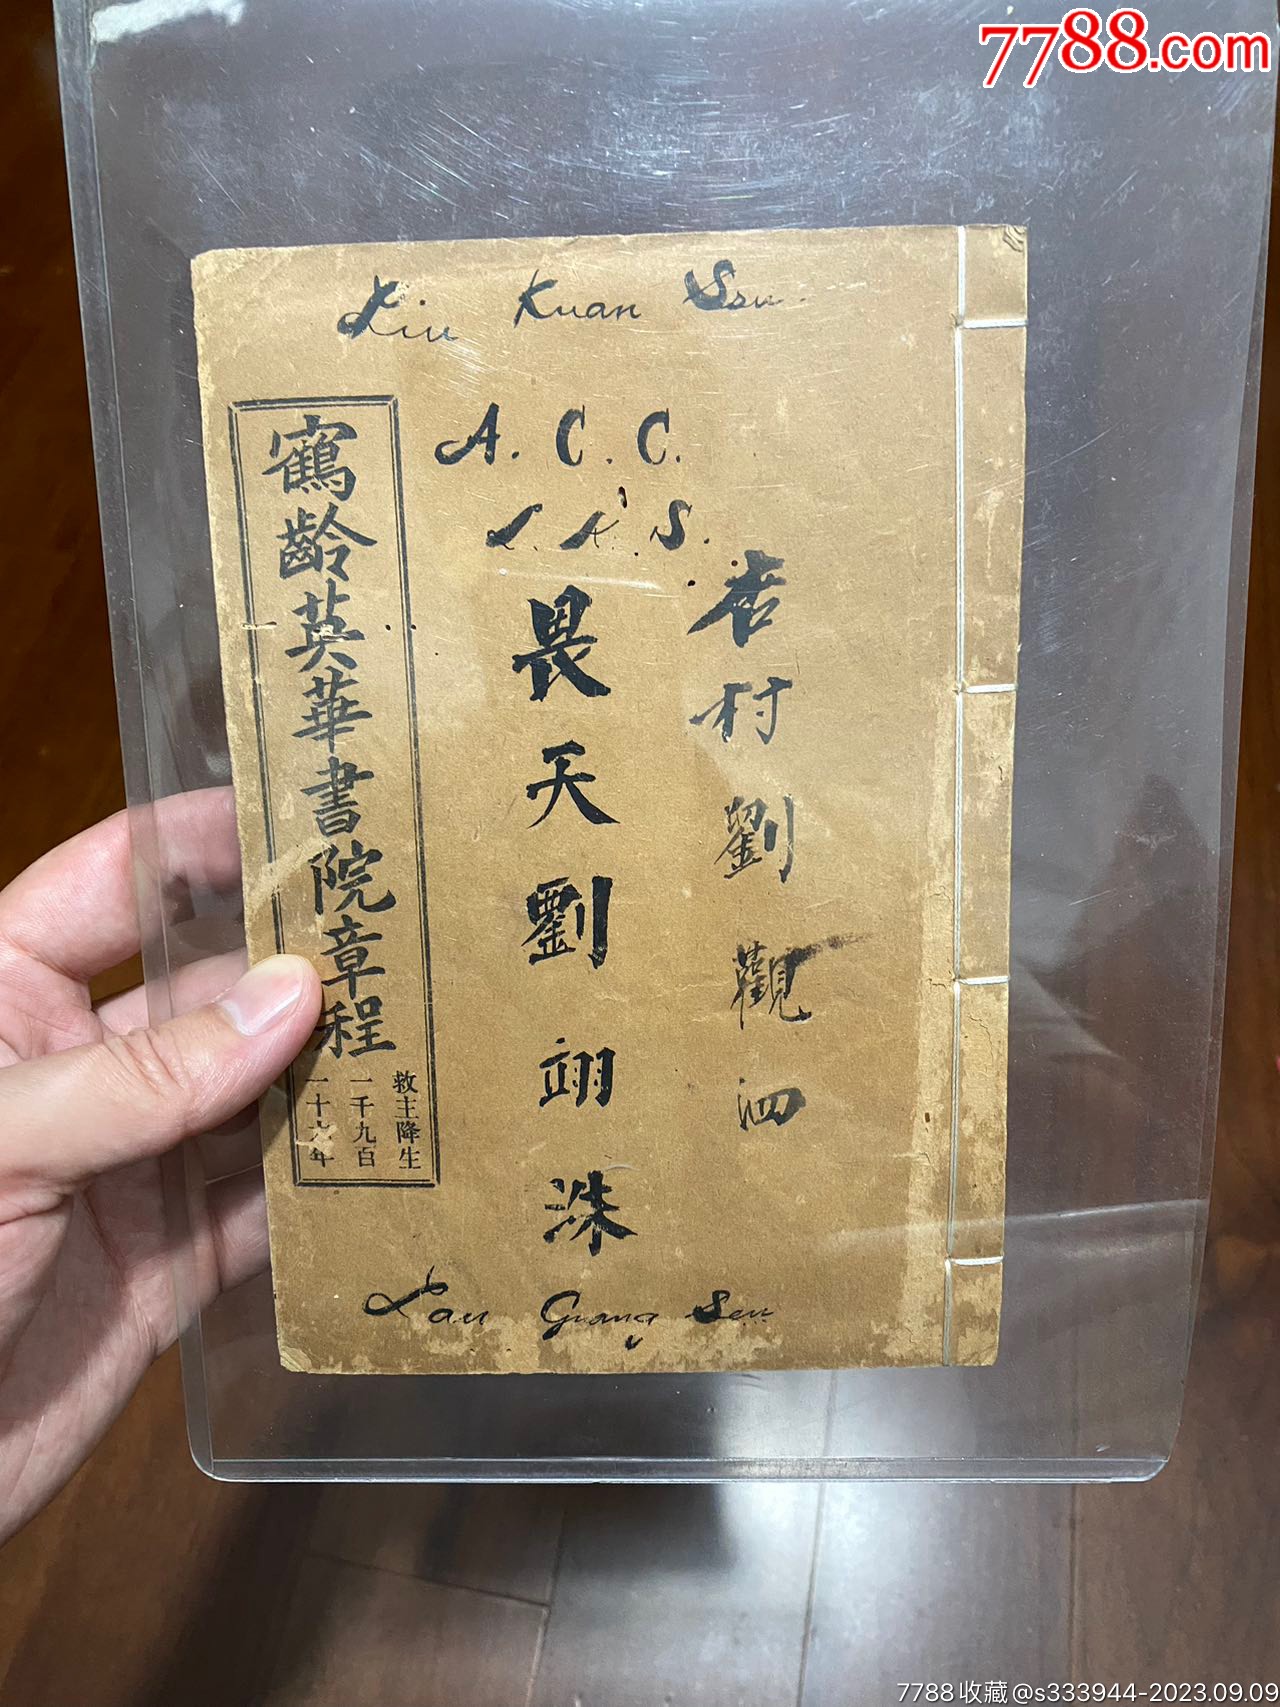 7788.com
Liu Kuan Szu.
A. C. C.
L. K. S.
杏村劉觀泗
畏天劉翊洙
鶴齡英華書院章程
救主降生
一千九百
一十六年
Lau Guang Sen
7788收藏@s333944-2023.09.09